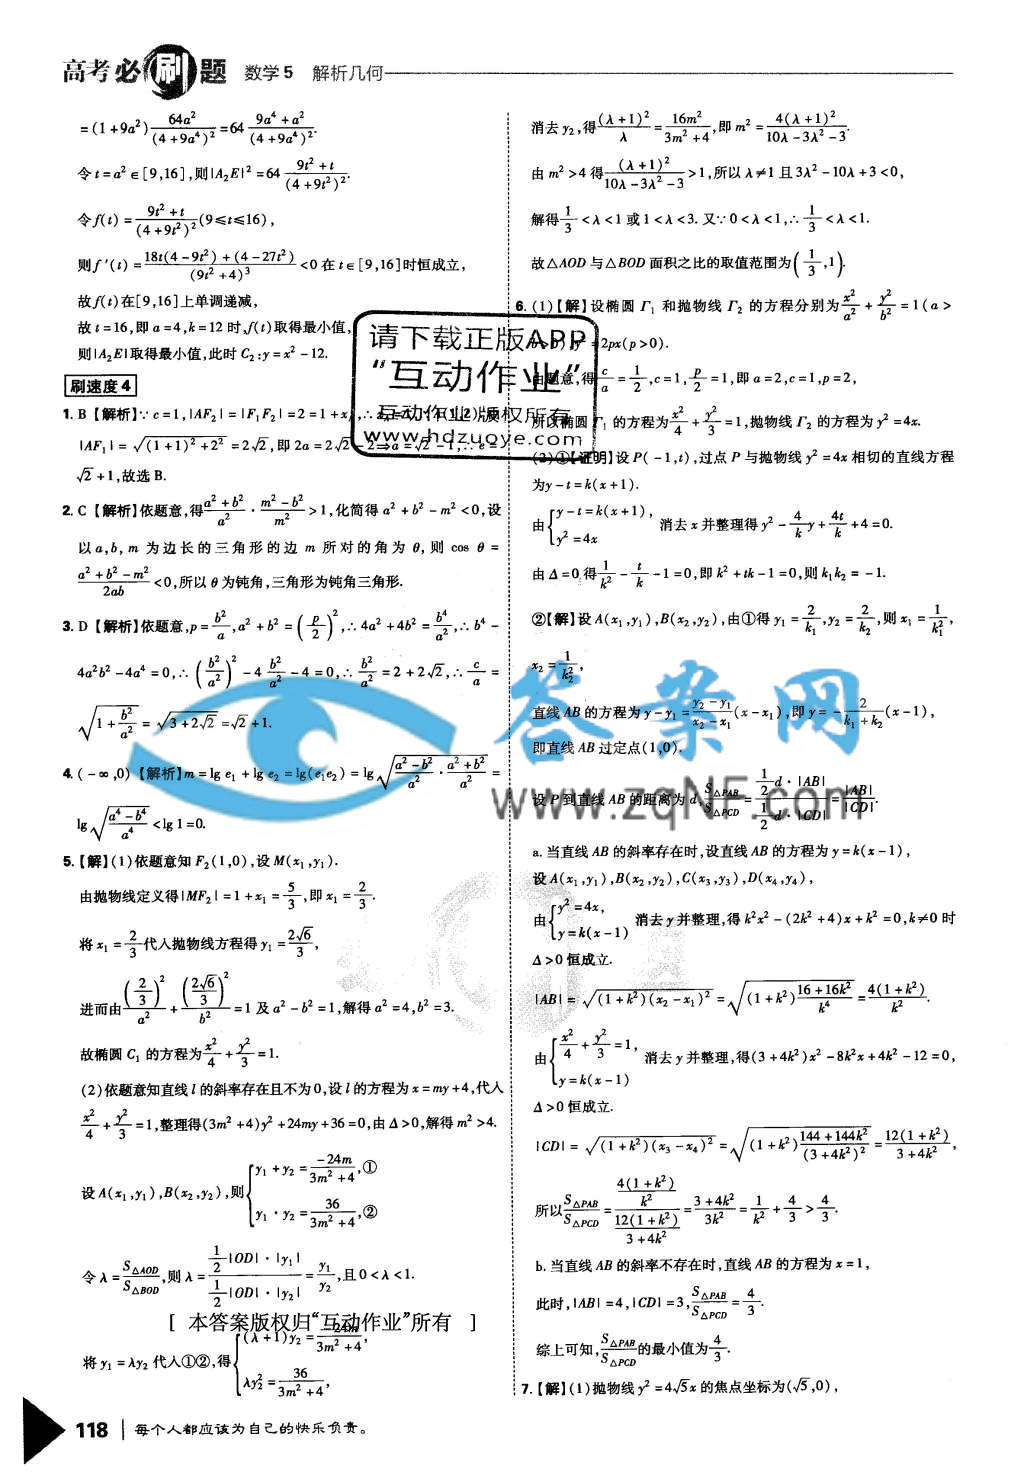 高考必刷题 数学5 解析几何
=(1+9a²)64a²/(4+9a⁴)²=64 (9a⁴+a²)/(4+9a⁴)².
令t=a²∈[9,16],则|A₂E|²=64 (9t²+t)/(4+9t²)².
令f(t)=(9t²+t)/(4+9t²)²(9≤t≤16),
则f′(t)=[18t(4-9t²)+(4-27t²)]/(9t²+4)³<0在t∈[9,16]时恒成立,
故f(t)在[9,16]上单调递减,
故t=16,即a=4,k=12时,f(t)取得最小值,
则|A₂E|取得最小值,此时C₂:y=x²-12.
刷速度4
1. B【解析】∵c=1,|AF₂|=|F₁F₂|=2=1+x
|AF₁|=√((1+1)²+2²)=2√2,即2a=2√2-2⇒a=√2-1,∴e=
√2+1,故选B.
2. C【解析】依题意,得(a²+b²)/a²·(m²-b²)/m²>1,化简得a²+b²-m²<0,设
以a,b,m为边长的三角形的边m所对的角为θ,则cos θ=
(a²+b²-m²)/2ab<0,所以θ为钝角,三角形为钝角三角形.
3. D【解析】依题意,p=b²/a,a²+b²=(p/2)²,∴4a²+4b²=b⁴/a²,∴b⁴-
4a²b²-4a⁴=0,∴(b²/a²)²-4 b²/a²-4=0,∴b²/a²=2+2√2,∴c/a=
√(1+b²/a²)=√(3+2√2)=√2+1.
4. (-∞,0)【解析】m=lg e₁+lg e₂=lg(e₁e₂)=lg√((a²-b²)/a²·(a²+b²)/a²)=
lg√((a⁴-b⁴)/a⁴)<lg 1=0.
5.【解】(1)依题意知F₂(1,0),设M(x₁,y₁).
由抛物线定义得|MF₂|=1+x₁=5/3,即x₁=2/3.
将x₁=2/3代入抛物线方程得y₁=2√6/3,
进而由(2/3)²/a²+(2√6/3)²/b²=1及a²-b²=1,解得a²=4,b²=3.
故椭圆C₁的方程为x²/4+y²/3=1.
(2)依题意知直线l的斜率存在且不为0,设l的方程为x=my+4,代入
x²/4+y²/3=1,整理得(3m²+4)y²+24my+36=0,由Δ>0,解得m²>4.
设A(x₁,y₁),B(x₂,y₂),则{y₁+y₂=-24m/(3m²+4),① y₁·y₂=36/(3m²+4),②
令λ=S△AOD/S△BOD,则λ=(1/2|OD|·|y₁|)/(1/2|OD|·|y₂|)=y₁/y₂,且0<λ<1.
[ 本答案版权归“互动作业”所有 ]
将y₁=λy₂代入①②,得{(λ+1)y₂=-24m/(3m²+4), λy₂²=36/(3m²+4),
118 每个人都应该为自己的快乐负责。
消去y₂,得(λ+1)²/λ=16m²/(3m²+4),即m²=4(λ+1)²/(10λ-3λ²-3).
由m²>4得(λ+1)²/(10λ-3λ²-3)>1,所以λ≠1且3λ²-10λ+3<0,
解得1/3<λ<1或1<λ<3.又∵0<λ<1,∴1/3<λ<1.
故△AOD与△BOD面积之比的取值范围为(1/3,1).
6.(1)【解】设椭圆Γ₁和抛物线Γ₂的方程分别为x²/a²+y²/b²=1(a>
b>0),y²=2px(p>0).
由题意,得c/a=1/2,c=1,p/2=1,即a=2,c=1,p=2,
所以椭圆Γ₁的方程为x²/4+y²/3=1,抛物线Γ₂的方程为y²=4x.
(2)①【证明】设P(-1,t),过点P与抛物线y²=4x相切的直线方程
为y-t=k(x+1).
由{y-t=k(x+1), y²=4x 消去x并整理得y²-4/k y+4t/k+4=0.
由Δ=0,得1/k²-t/k-1=0,即k²+tk-1=0,则k₁k₂=-1.
②【解】设A(x₁,y₁),B(x₂,y₂),由①得y₁=2/k₁,y₂=2/k₂,则x₁=1/k₁²,
x₂=1/k₂²,
直线AB的方程为y-y₁=(y₂-y₁)/(x₂-x₁)(x-x₁),即y=-2/(k₁+k₂)(x-1),
即直线AB过定点(1,0).
设P到直线AB的距离为d,S△PAB/S△PCD=(1/2 d·|AB|)/(1/2 d·|CD|)=|AB|/|CD|.
a.当直线AB的斜率存在时,设直线AB的方程为y=k(x-1),
设A(x₁,y₁),B(x₂,y₂),C(x₃,y₃),D(x₄,y₄),
由{y²=4x, y=k(x-1) 消去y并整理,得k²x²-(2k²+4)x+k²=0,k≠0时
Δ>0恒成立.
|AB|=√((1+k²)(x₂-x₁)²)=√((1+k²)(16+16k²)/k⁴)=4(1+k²)/k².
由{x²/4+y²/3=1, y=k(x-1) 消去y并整理,得(3+4k²)x²-8k²x+4k²-12=0,
Δ>0恒成立.
|CD|=√((1+k²)(x₃-x₄)²)=√((1+k²)(144+144k²)/(3+4k²)²)=12(1+k²)/(3+4k²),
所以S△PAB/S△PCD=(4(1+k²)/k²)/(12(1+k²)/(3+4k²))=(3+4k²)/3k²=1/k²+4/3>4/3.
b.当直线AB的斜率不存在时,直线AB的方程为x=1,
此时,|AB|=4,|CD|=3,S△PAB/S△PCD=4/3.
综上可知,S△PAB/S△PCD的最小值为4/3.
7.【解】(1)抛物线y²=4√5x的焦点坐标为(√5,0),
请下载正版APP
“互动作业”
互动作业版权所有
www.hdzuoye.com
答案网
www.zqNF.com